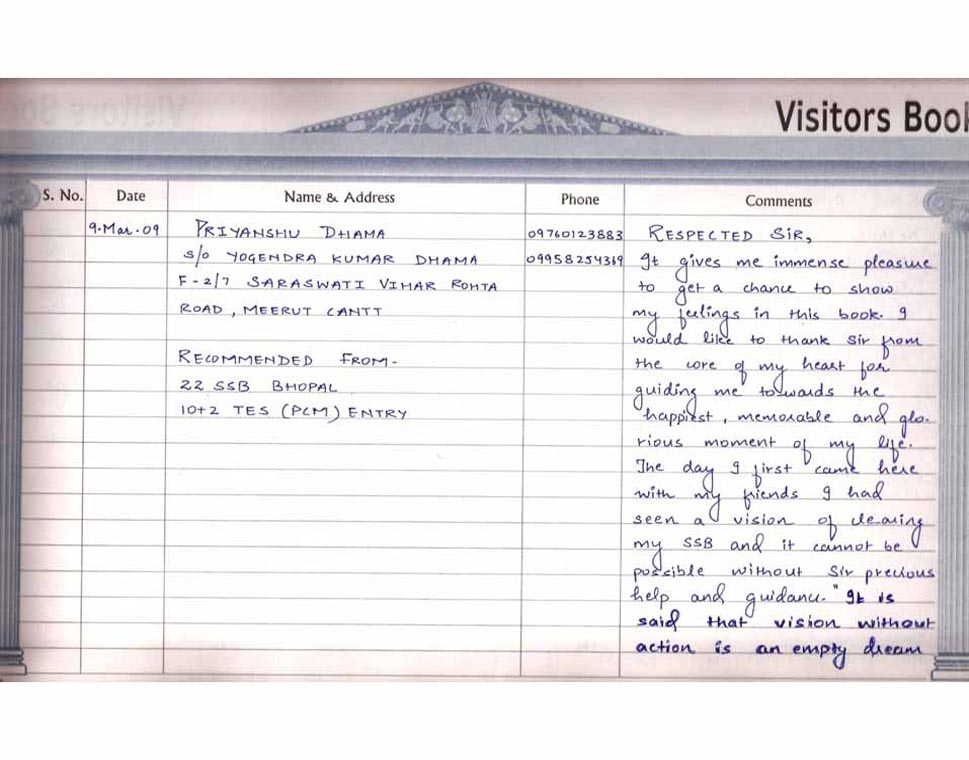 Visitors Book
S. No. Date Name & Address Phone Comments
9.Mar.09
PRIYANSHU DHAMA
S/O YOGENDRA KUMAR DHAMA
F-2/7 SARASWATI VIHAR ROHTA
ROAD, MEERUT CANTT
RECOMMENDED FROM-
22 SSB BHOPAL
10+2 TES (PCM) ENTRY
09760123883
09958254369
RESPECTED SIR,
It gives me immense pleasure
to get a chance to show
my feelings in this book. I
would like to thank Sir from
the core of my heart for
guiding me towards the
happiest, memorable and glo-
rious moment of my life.
The day I first came here
with my friends I had
seen a vision of clearing
my SSB and it cannot be
possible without Sir precious
help and guidance. "It is
said that vision without
action is an empty dream